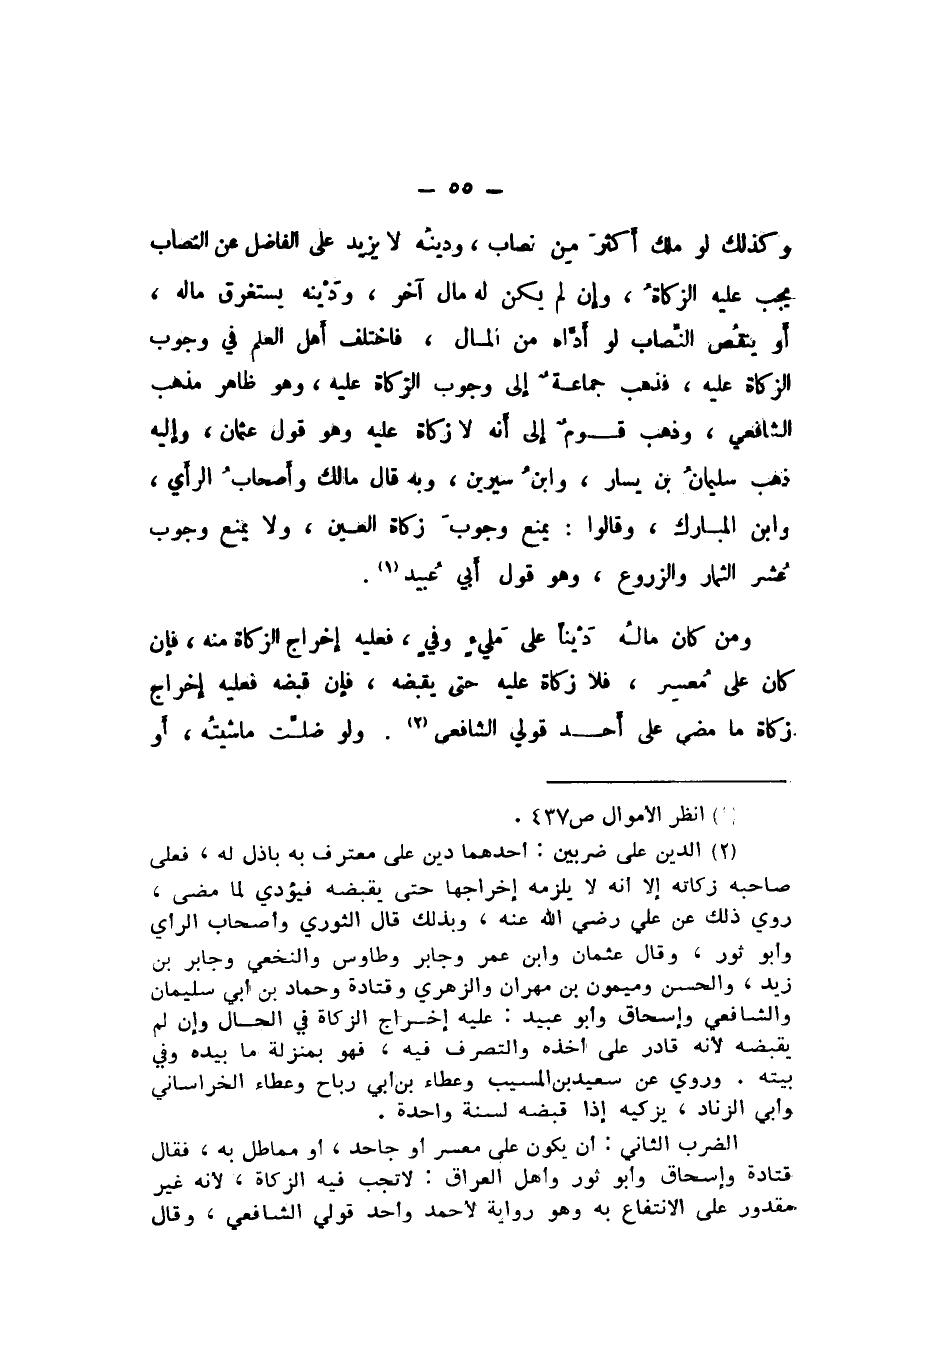 — ٥٥ —
وكذلك لو ملك أكثرَ من نصاب ، ودينُه لا يزيد على الفاضل عن النصاب
يجب عليه الزكاةُ ، وإن لم يكن له مال آخر ، ودَيْنه يستغرق ماله ،
أو ينقُص النِّصاب لو أدَّاه من المال ، فاختلف أهل العلم في وجوب
الزكاة عليه ، فذهب جماعةٌ إلى وجوب الزكاة عليه ، وهو ظاهر مذهب
الشافعي ، وذهب قومٌ إلى أنه لا زكاة عليه وهو قول عثمان ، وإليه
ذهب سليمانُ بن يسار ، وابنُ سيرين ، وبه قال مالك وأصحابُ الرأي ،
وابن المبارك ، وقالوا : يمنع وجوبَ زكاة العين ، ولا يمنع وجوب
عُشر الثمار والزروع ، وهو قول أبي عُبيد (١) .
ومن كان مالُه دَيْناً على مَليءٍ وفيٍ ، فعليه إخراج الزكاة منه ، فإن
كان على مُعسر ، فلا زكاة عليه حتى يقبضه ، فإن قبضه فعليه إخراج
زكاة ما مضى على أحد قولي الشافعي (٢) . ولو ضلَّت ماشيتُه ، أو
(١) انظر الاموال ص٤٣٧ .
(٢) الدين على ضربين : أحدهما دين على معترف به باذل له ، فعلى
صاحبه زكاته إلا أنه لا يلزمه إخراجها حتى يقبضه فيؤدي لما مضى ،
روي ذلك عن علي رضي الله عنه ، وبذلك قال الثوري وأصحاب الرأي
وأبو ثور ، وقال عثمان وابن عمر وجابر وطاوس والنخعي وجابر بن
زيد ، والحسن وميمون بن مهران والزهري وقتادة وحماد بن أبي سليمان
والشافعي وإسحاق وأبو عبيد : عليه إخراج الزكاة في الحال وإن لم
يقبضه لأنه قادر على أخذه والتصرف فيه ، فهو بمنزلة ما بيده وفي
بيته . وروي عن سعيدبن المسيب وعطاء بن أبي رباح وعطاء الخراساني
وأبي الزناد ، يزكيه إذا قبضه لسنة واحدة .
الضرب الثاني : أن يكون على معسر أو جاحد ، أو مماطل به ، فقال
قتادة وإسحاق وأبو ثور وأهل العراق : لاتجب فيه الزكاة ، لأنه غير
مقدور على الانتفاع به وهو رواية لأحمد وأحد قولي الشافعي ، وقال